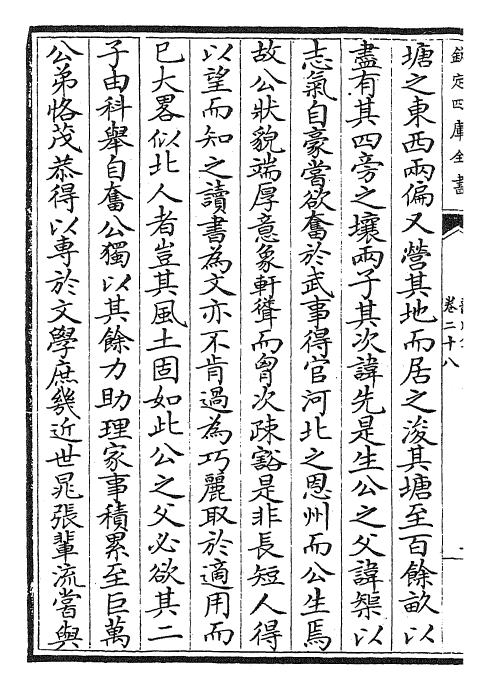 欽定四庫全書
卷二十八
塘之東西兩偏又營其地而居之浚其塘至百餘畝以
盡有其四旁之壤兩子其次諱先是生公之父諱槼以
志氣自豪嘗欲奮於武事得官河北之恩州而公生焉
故公狀貌端厚意象軒聳而胷次疎豁是非長短人得
以望而知之讀書為文亦不肯過為巧麗取於適用而
已大畧似北人者豈其風土固如此公之父必欲其二
子由科舉自奮公獨以其餘力助理家事積累至巨萬
公弟恪茂恭得以專於文學庶幾近世晁張輩流嘗與